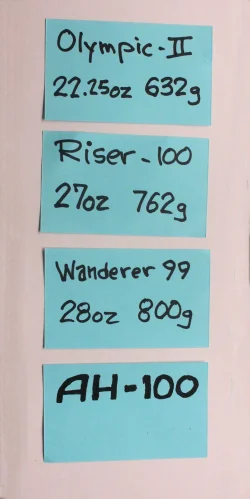 Olympic-II
22.25oz 632g
Riser-100
27oz 762g
Wanderer 99
28oz 800g
AH-100